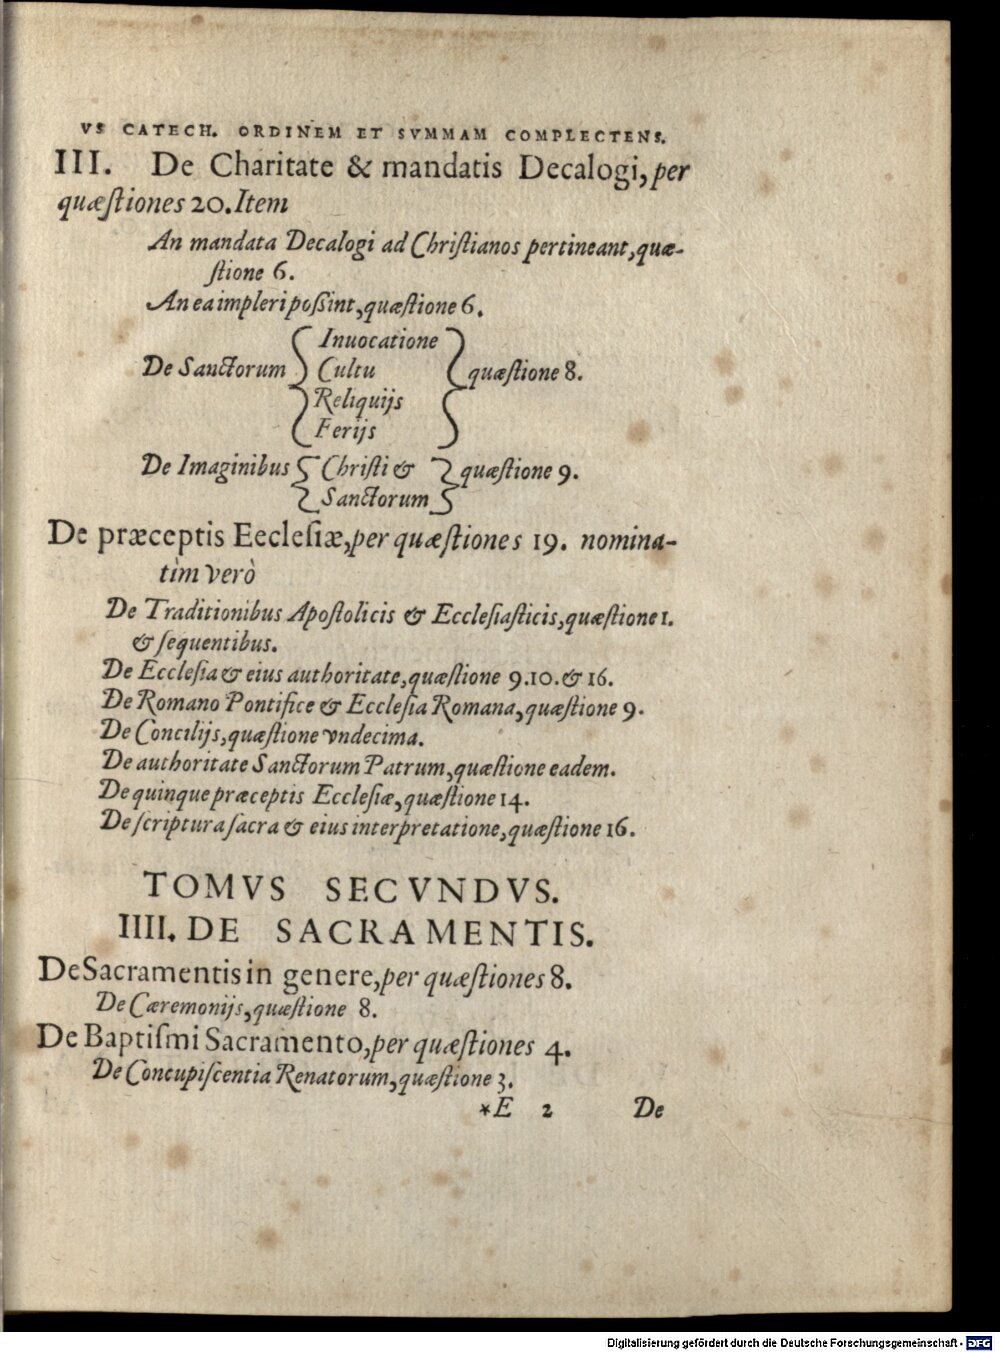 VS CATECH. ORDINEM ET SVMMAM COMPLECTENS.
III. De Charitate & mandatis Decalogi, per
quæſtiones 20. Item
An mandata Decalogi ad Chriſtianos pertineant, quæ-
ſtione 6.
An ea impleri poßint, quæſtione 6.
Inuocatione
De Sanctorum Cultu quæſtione 8.
Reliquijs
Ferijs
De Imaginibus Chriſti & quæſtione 9.
Sanctorum
De præceptis Eccleſiæ, per quæſtiones 19. nomina-
tim verò
De Traditionibus Apoſtolicis & Eccleſiaſticis, quæſtione 1.
& ſequentibus.
De Eccleſia & eius authoritate, quæſtione 9. 10. & 16.
De Romano Pontifice & Eccleſia Romana, quæſtione 9.
De Concilijs, quæſtione vndecima.
De authoritate Sanctorum Patrum, quæſtione eadem.
De quinque præceptis Eccleſiæ, quæſtione 14.
De ſcriptura ſacra & eius interpretatione, quæſtione 16.
TOMVS SECVNDVS.
IIII. DE SACRAMENTIS.
De Sacramentis in genere, per quæſtiones 8.
De Cæremonijs, quæſtione 8.
De Baptiſmi Sacramento, per quæſtiones 4.
De Concupiſcentia Renatorum, quæſtione 3.
*E 2 De
Digitalisierung gefördert durch die Deutsche Forschungsgemeinschaft - DFG